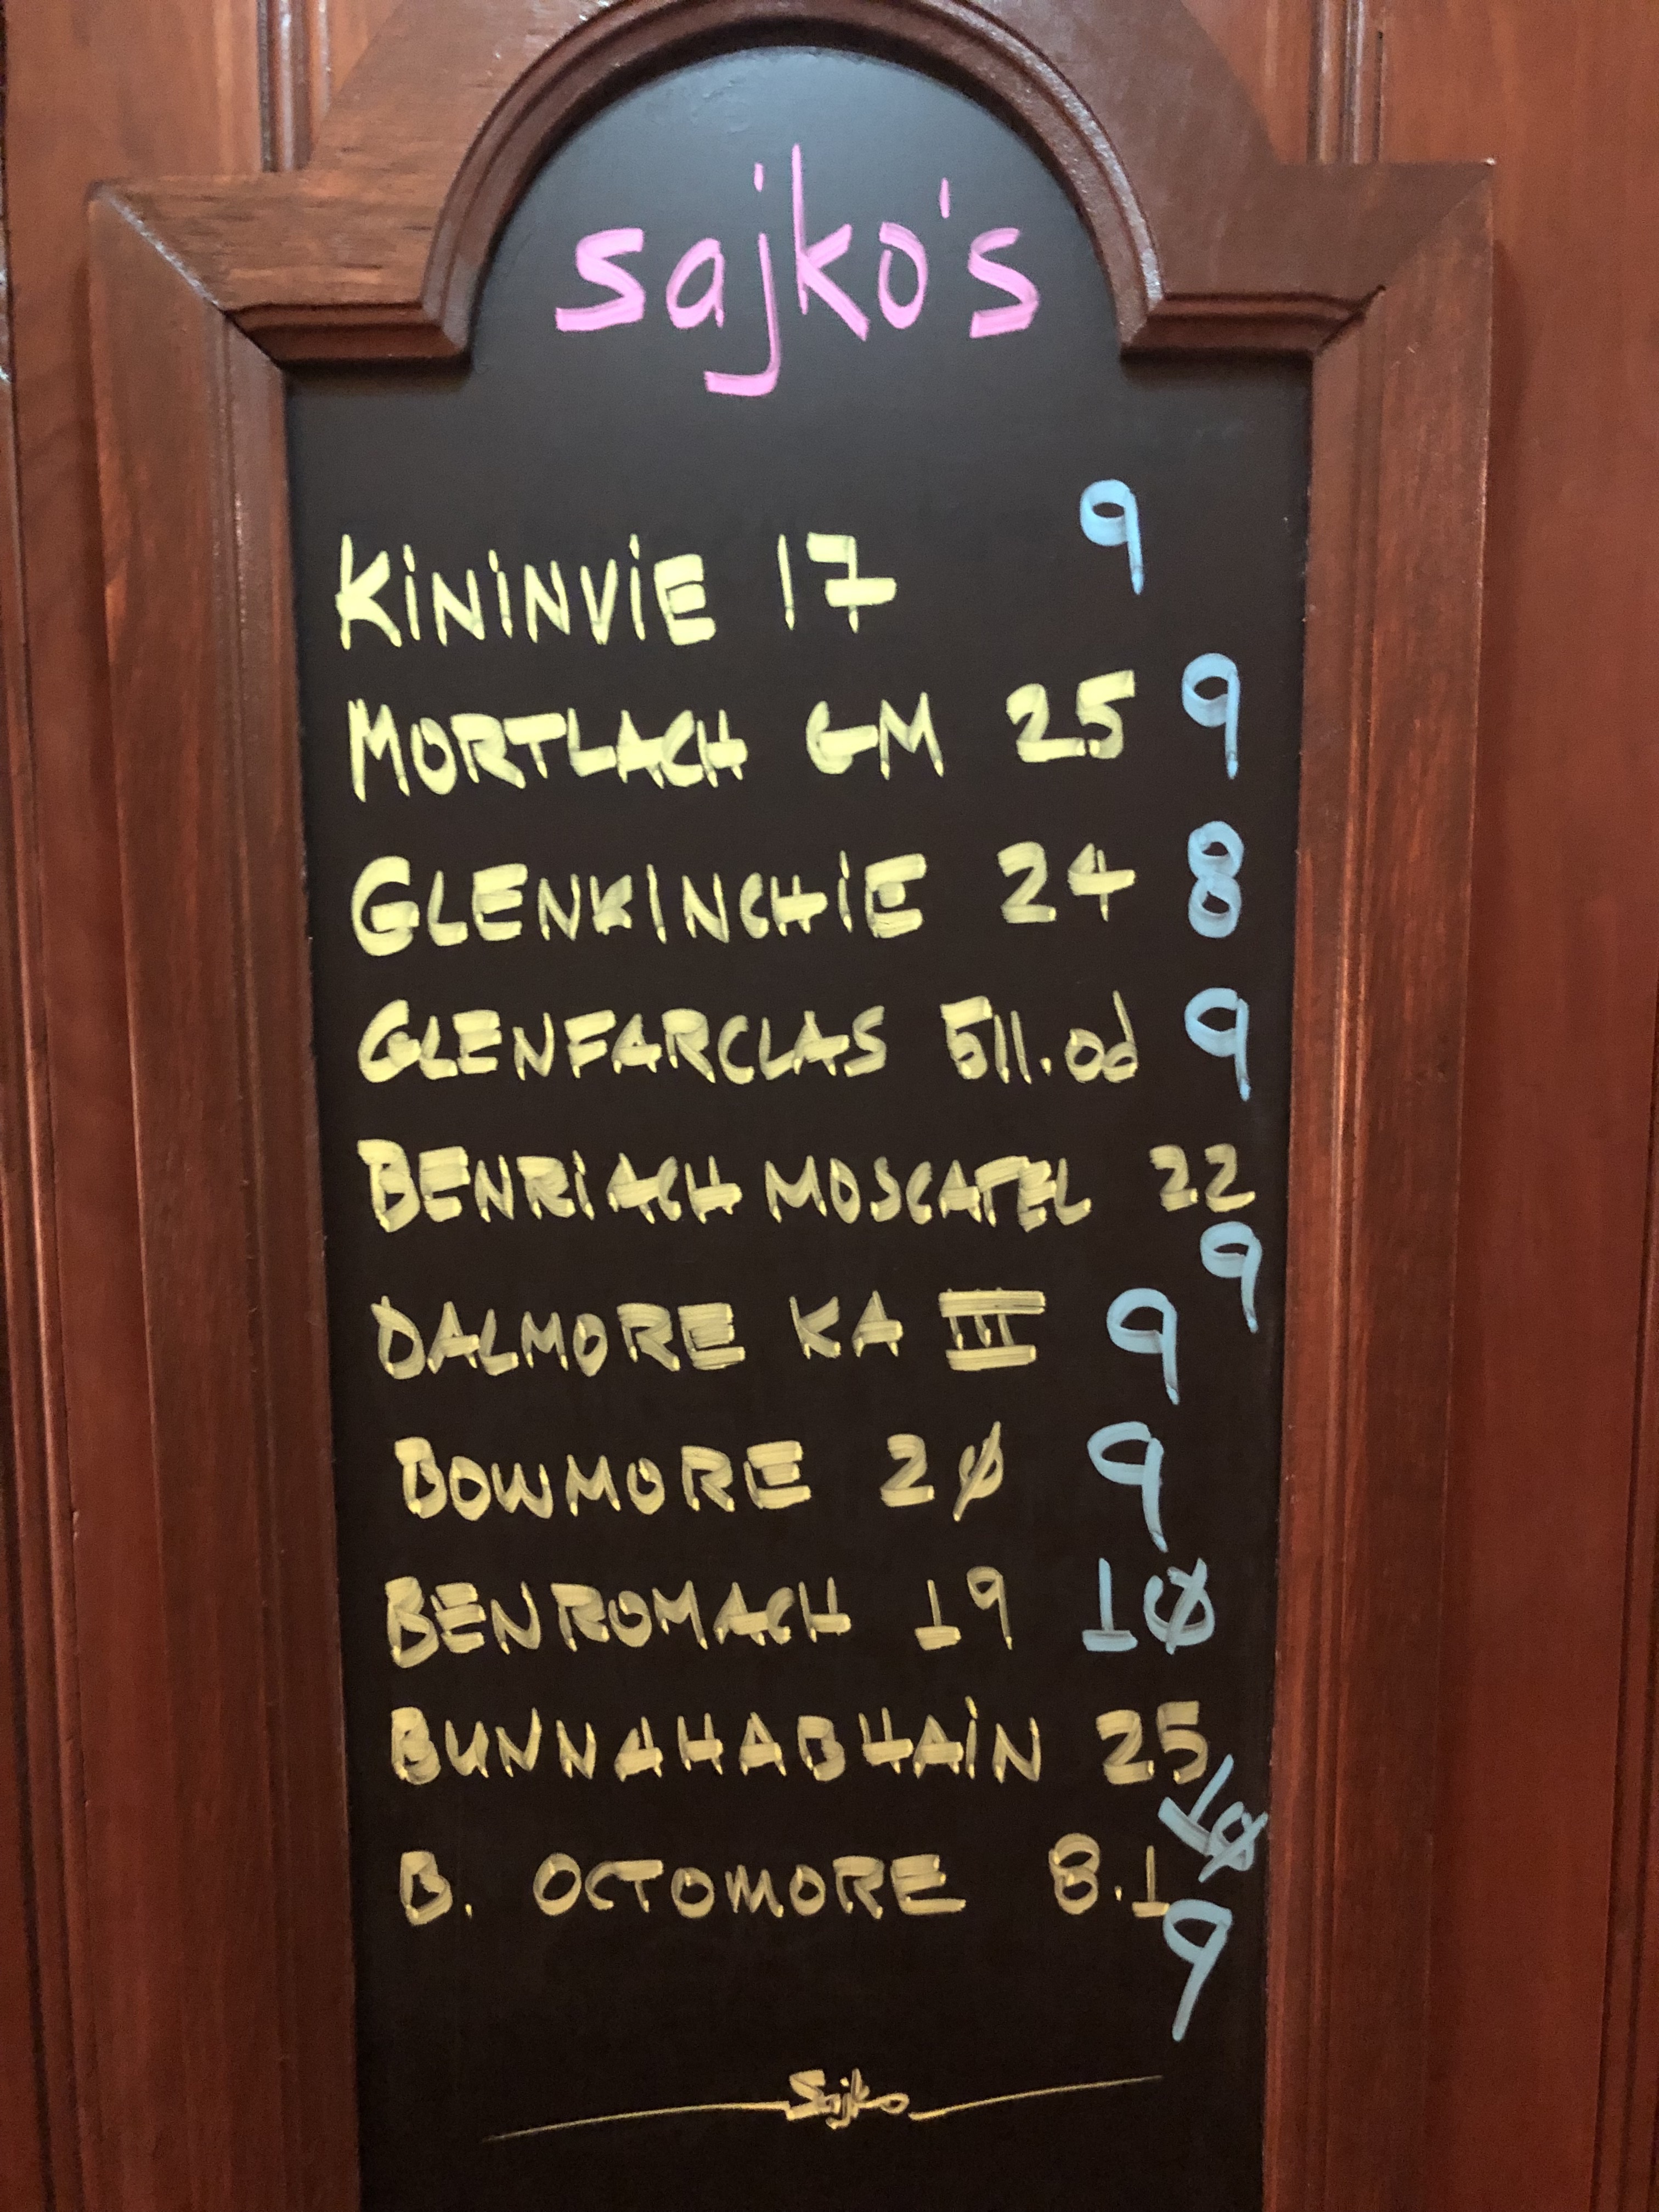 sajko's
KiNiNViE 17 9
MORTLACH GM 25 9
GLENKINCHiE 24 8
GLENFARCLAS 511.od 9
BENRiACH MOSCATEL 22
9
DALMORE KA III 9
BOWMORE 20 9
BENROMACH 19 10
BUNNAHABHAiN 25
10
B. OCTOMORE 8.1
9
Sajko